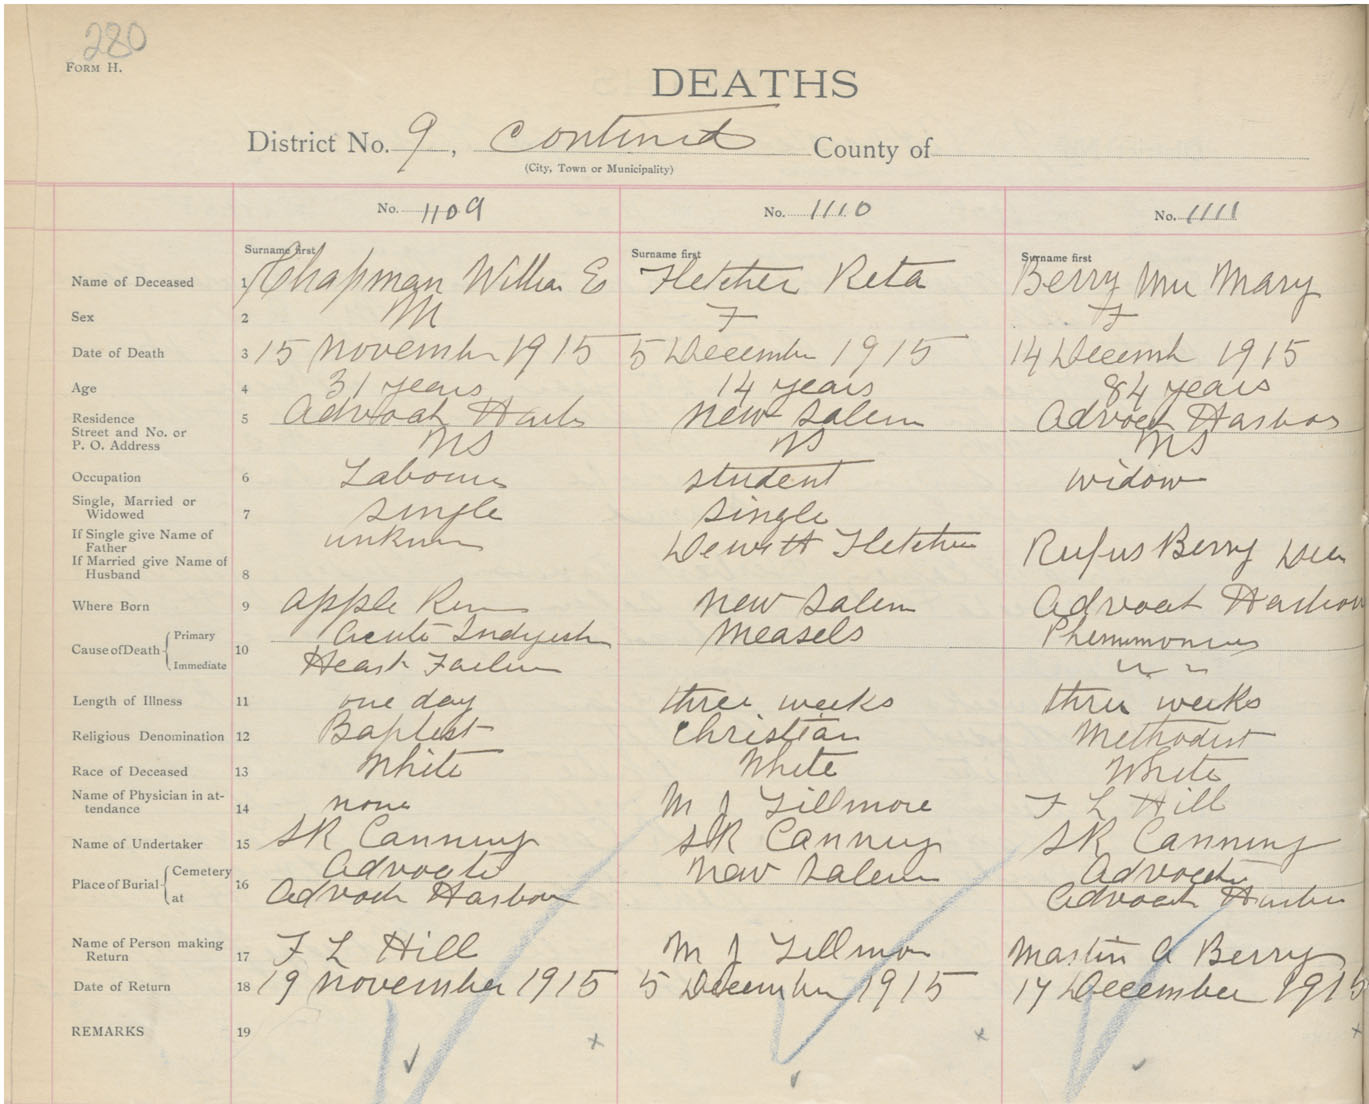 280
FORM H.
DEATHS
District No. 9, Continued County of
(City, Town or Municipality)
No. 1109 No. 1110 No. 1111
Surname first Surname first Surname first
Name of Deceased 1 Chapman William E Fletcher Reta Berry Mrs Mary
Sex 2 M F F
Date of Death 3 15 November 1915 5 December 1915 14 Decemb 1915
Age 4 31 years 14 years 84 years
Residence 5 Advocat Harbor New Salem Advocat Harbor
Street and No. or
P. O. Address NS NS NS
Occupation 6 Labourer student widow
Single, Married or
Widowed 7 single single
If Single give Name of
Father unknown Dewitt Fletcher Rufus Berry
If Married give Name of
Husband 8
Where Born 9 Apple River New Salem Advocat Harbour
Cause of Death Primary 10 Acute Indigestion Measels
Immediate Heart Failure " "
Length of Illness 11 one day three weeks three weeks
Religious Denomination 12 Baptist Christian Methodist
Race of Deceased 13 White White White
Name of Physician in at-
tendance 14 none M J Fillmore F L Hill
Name of Undertaker 15 SR Canning SR Canning SR Canning
Place of Burial Cemetery 16 Advocate New Salem Advocate
at Advocat Harbour Advocat Harbor
Name of Person making
Return 17 F L Hill M J Fillmore Martin A Berry
Date of Return 18 19 November 1915 5 December 1915 17 December 1915
REMARKS 19